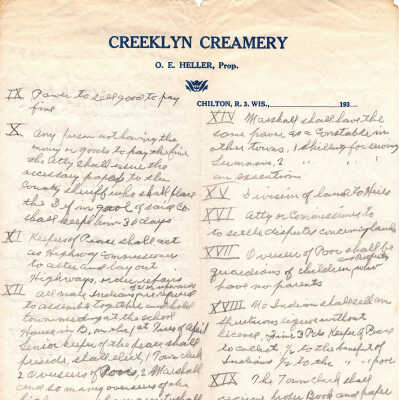 CREEKLYN CREAMERY
O. E. HELLER, Prop.
CHILTON, R. 3. WIS., 193
IX Power to sell good to pay
fine
X Any person not having the
mony or goods to pay the fine
the Atty shall issue the
necessary papers to the
County sheriff who shall place
the D of in gaol of said Co
shall keep him 30 days
XI Keepers of Peace shall act
as Highway Commissioners
to alter and lay out
Highways, order repairs
XII All male Indians
to assemble together and hold
town meeting at the school
House in B, on the 1st Tues of April
Senior keeper of the peace shall
preside, shall elect, 1 Town clerk
2 Overseers of Poors, 2 Marshall
and so many overseers of the
XIV Marshall shall have the
same power as a Constable in
other towns. 1 shilling for serving
Summons, 2 " " "
an execution
XV Division of land to Heirs
XVI Atty or Commissioners to
to settle disputes concerning lands
XVII Overseers of Poor shall be
guardians of children who
have no parents
XVIII No Indian shall sell any
Spirituous liquors without
license, Fine 3 Keeper of Peace
to collect 1/2 to the benefit of
Indians 1/2 to the " poor
XIX The Town clerk shall
Book and paper